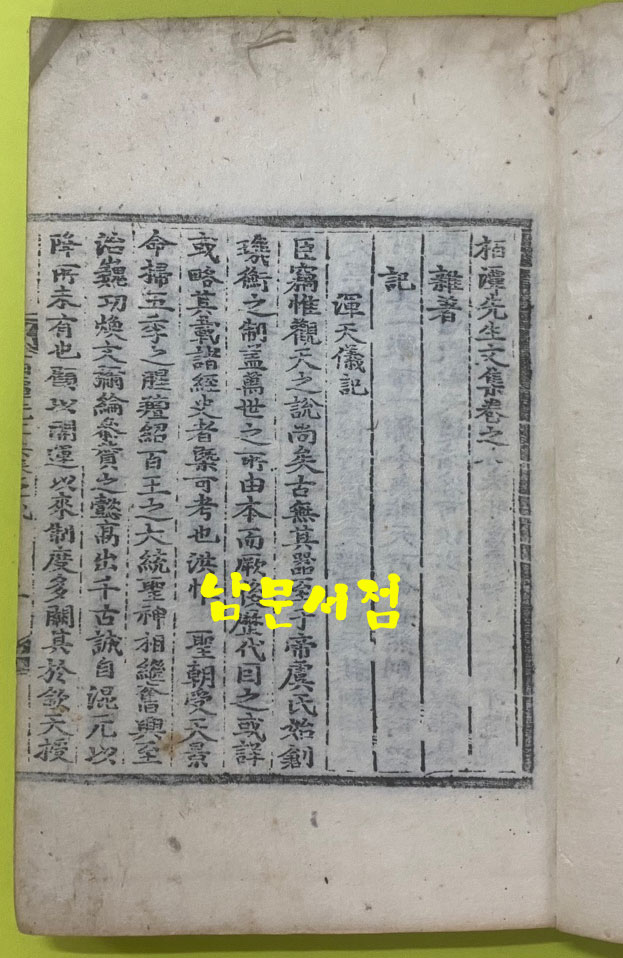 栢潭先生文集卷之
雜著
記
渾天儀記
臣竊惟觀天之說尚矣古無其器至于帝虞氏始創
璣衡之制盖萬世之所由本而厥後歷代因之或詳
或略其載諸經史者槩可考也洪惟 聖朝受天景
命掃五季之腥羶紹百王之大統聖神相繼奮興至
治巍功煥文彌綸叅賛之懿髙出千古誠自混元以
降所未有也顧以開運以來制度多闕其於欽天授
남문서점